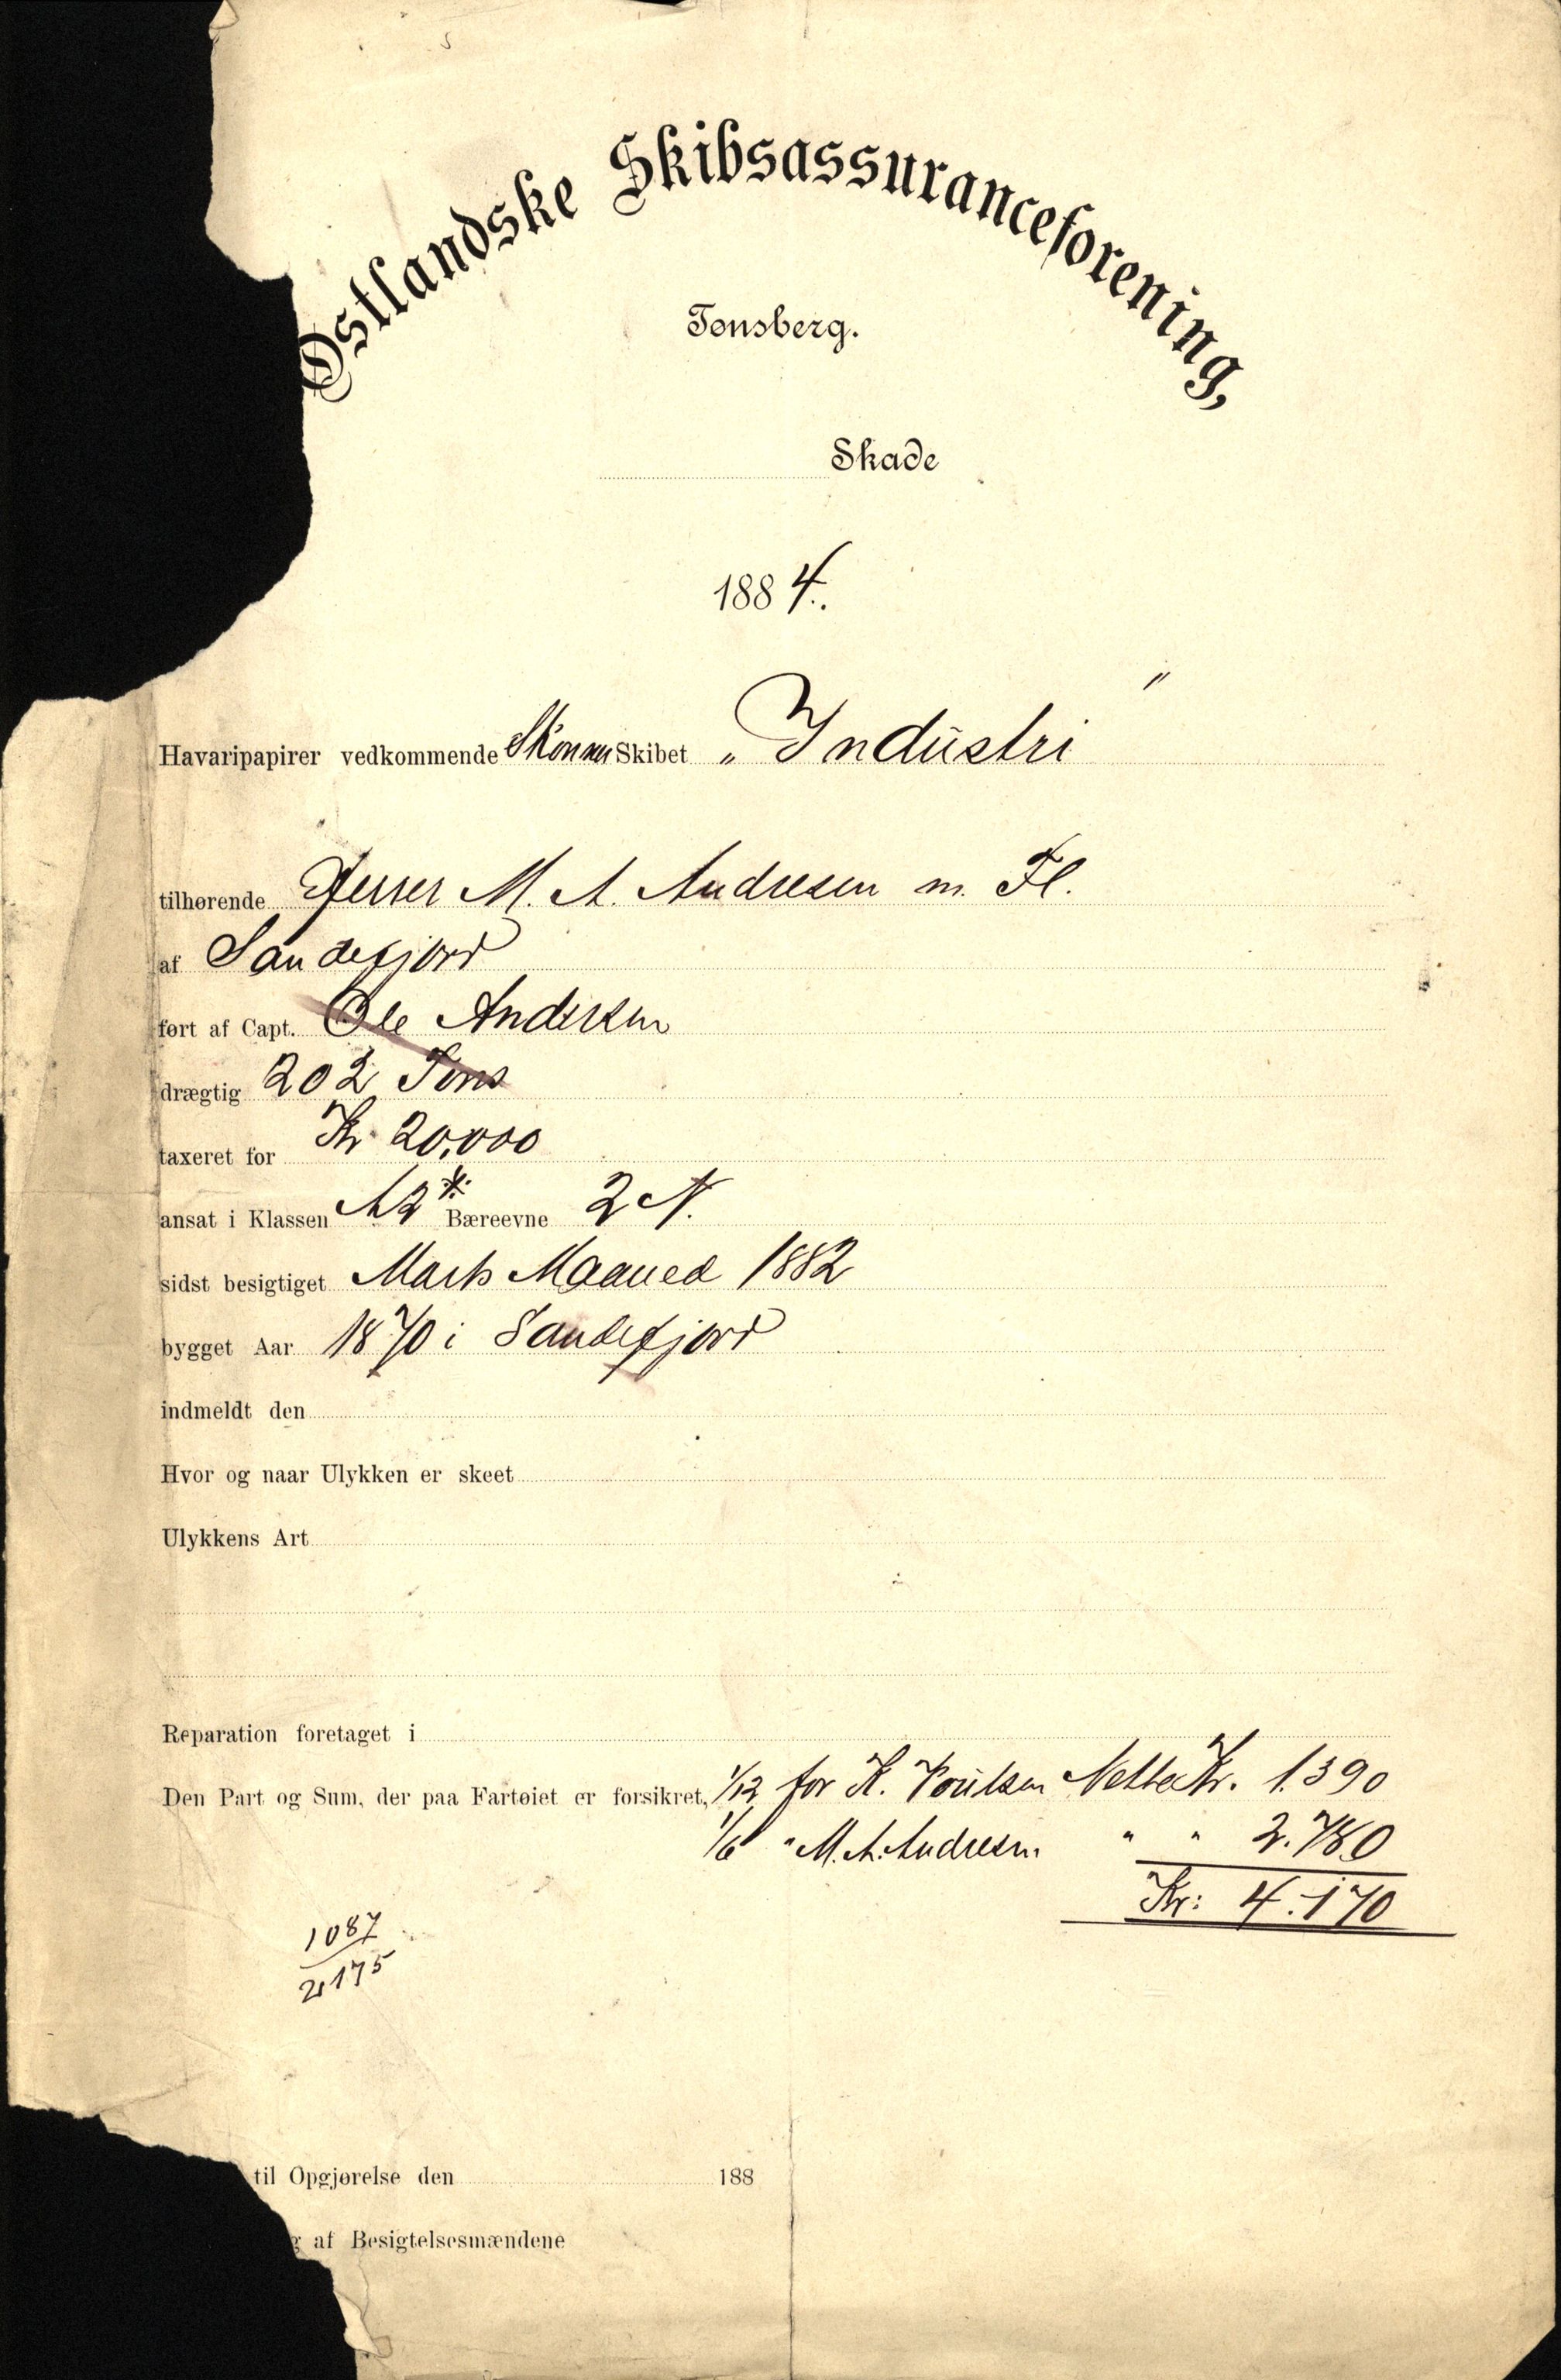 Østlandske Skibsassuranceforening,
Tønsberg.
Skade
1884.
Havaripapirer vedkommende Skonner Skibet „Industri"
tilhørende Herrer M. A. Andresen m. Fl.
af Sandefjord
ført af Capt. Ole Andersen
drægtig 202 Tons
taxeret for Kr. 20,000
ansat i Klassen A2* Bæreevne 2 N.
sidst besigtiget Marts Maaned 1882
bygget Aar 1870 i Sandefjord
indmeldt den
Hvor og naar Ulykken er skeet
Ulykkens Art
Reparation foretaget i
Den Part og Sum, der paa Fartøiet er forsikret, 1/12 for K. Poulsen Netto Kr. 1.390
1/6 " M. A. Andresen " " 2.780
Kr: 4.170
1087
2175
til Opgjørelse den 188
g af Besigtelsesmændene